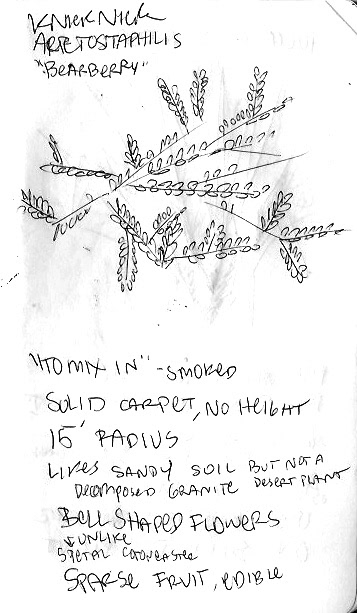 KNICK NICK
ARCTOSTAPHILIS
"BEARBERRY"
"TO MIX IN" - SMOKED
SOLID CARPET, NO HEIGHT
15' RADIUS
LIKES SANDY SOIL BUT NOT A
DECOMPOSED GRANITE DESERT PLANT
BELL SHAPED FLOWERS
UNLIKE
COTONEASTER
SPARSE FRUIT, EDIBLE